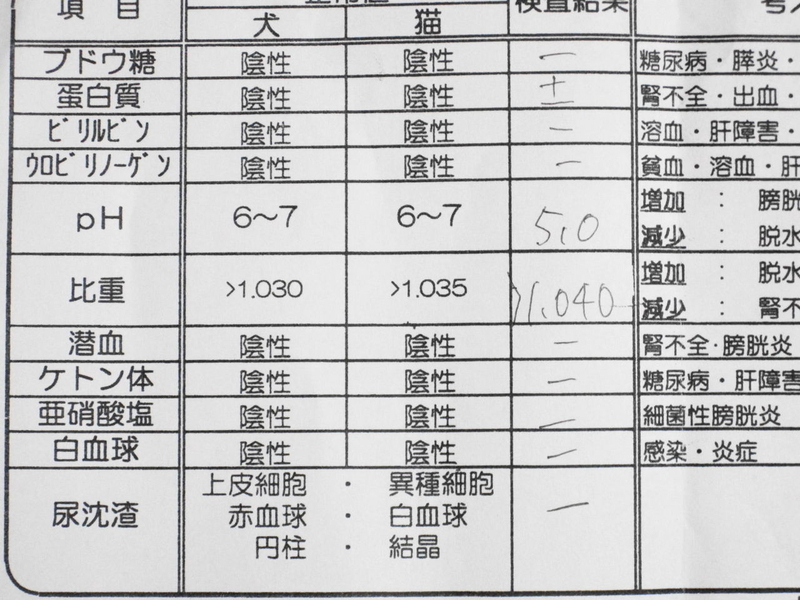 項目 正常値 検査結果
犬 猫
ブドウ糖 陰性 陰性 − 糖尿病・膵炎・
蛋白質 陰性 陰性 ± 腎不全・出血・
ビリルビン 陰性 陰性 − 溶血・肝障害・
ウロビリノーゲン 陰性 陰性 − 貧血・溶血・肝
pH 6〜7 6〜7 5.0 増加 : 膀胱
減少 : 脱水
比重 >1.030 >1.035 >1.040 増加 : 脱水
減少 : 腎不
潜血 陰性 陰性 − 腎不全・膀胱炎
ケトン体 陰性 陰性 − 糖尿病・肝障害
亜硝酸塩 陰性 陰性 − 細菌性膀胱炎
白血球 陰性 陰性 − 感染・炎症
尿沈渣 上皮細胞 ・ 異種細胞 −
赤血球 ・ 白血球
円柱 ・ 結晶